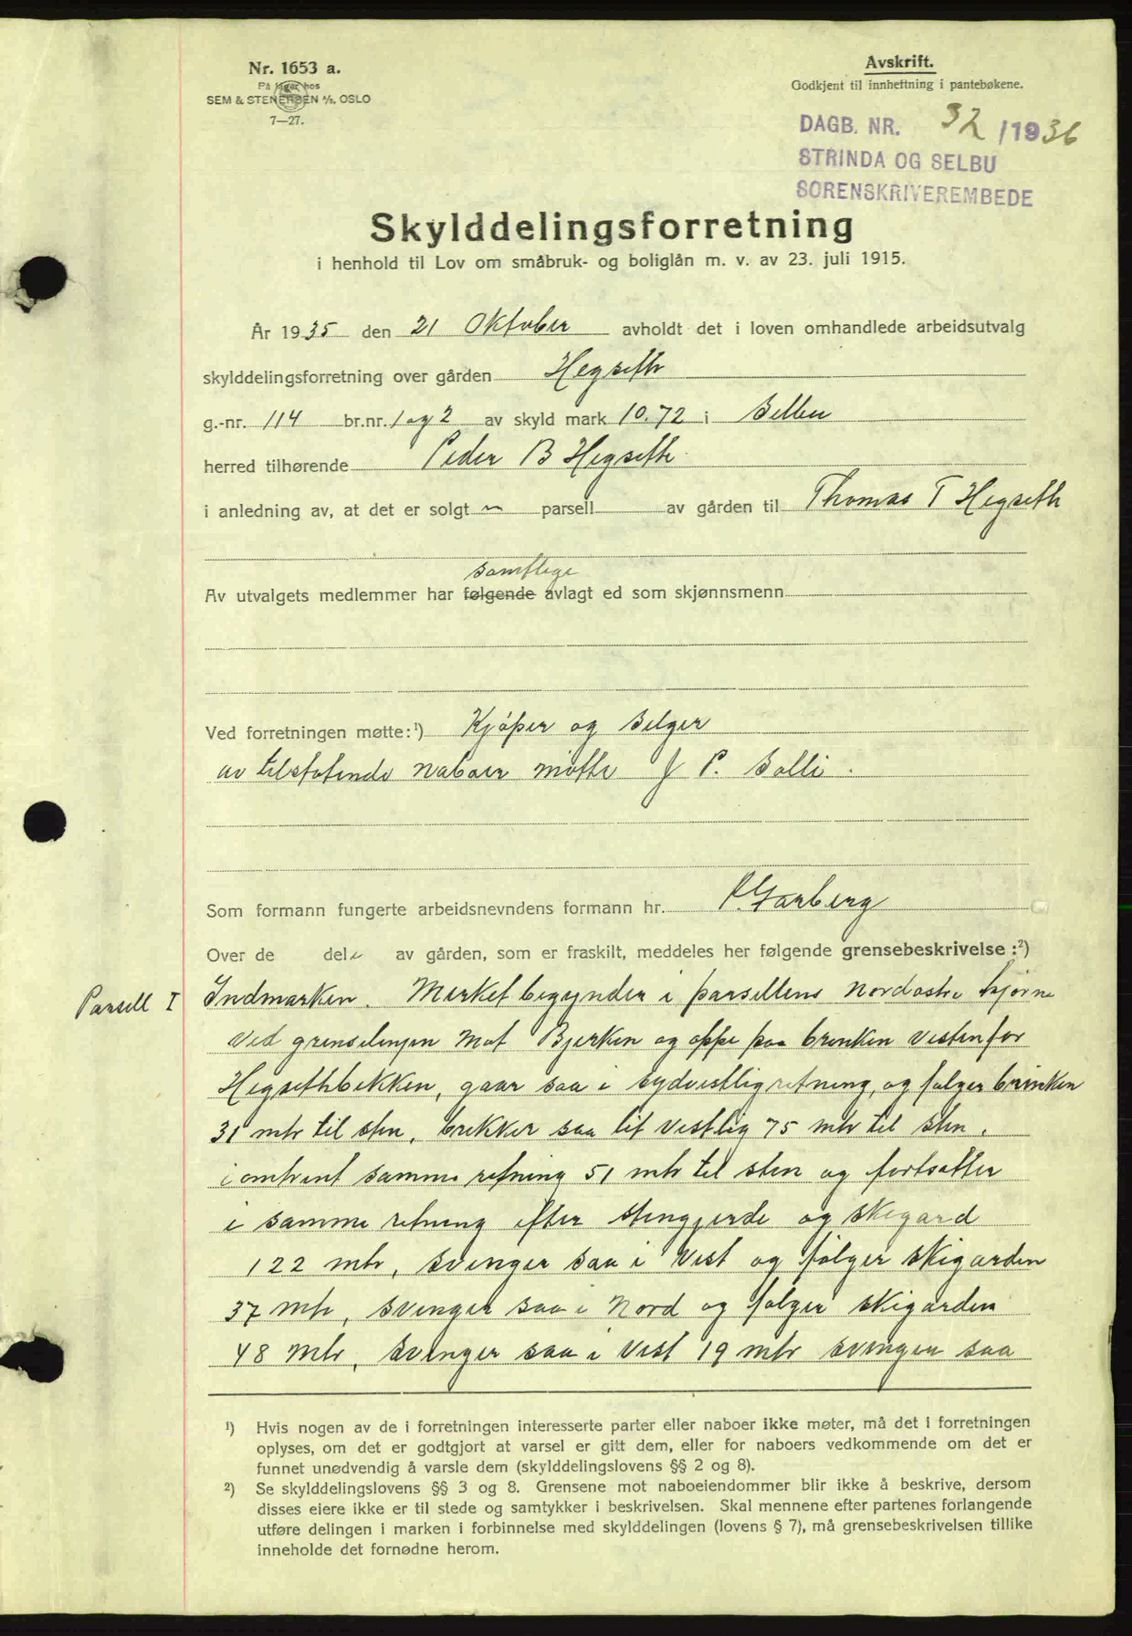 Nr. 1653 a.
På lager hos
SEM & STENERSEN A/S. OSLO
7—27.
Avskrift.
Godkjent til innheftning i pantebøkene.
DAGB. NR. 32/1936
STRINDA OG SELBU
SORENSKRIVEREMBEDE
Skylddelingsforretning
i henhold til Lov om småbruk- og boliglån m. v. av 23. juli 1915.
År 1935 den 21 Oktober avholdt det i loven omhandlede arbeidsutvalg
skylddelingsforretning over gården Hegseth
g.-nr. 114 br.nr. 1 og 2 av skyld mark 10.72 i Selbu
herred tilhørende Peder B Hegseth
i anledning av, at det er solgt en parsell av gården til Thomas T Hegseth
samtlige
Av utvalgets medlemmer har følgende avlagt ed som skjønnsmenn
Ved forretningen møtte:¹) Kjøper og Selger
av tilstøtende naboer møtte J P. Solli.
Som formann fungerte arbeidsnevndens formann hr. P. Garberg
Over de del av gården, som er fraskilt, meddeles her følgende grensebeskrivelse:²)
Parsell I Indmarken. Merket begynder i parsellens nordøstre hjørne
ved grenselinjen mot Bjerken og oppe paa brinken vestenfor
Hegsethbekken, gaar saa i sydvestlig retning, og følger brinken
31 mtr til sten, brekker saa lit vestlig 75 mtr til sten,
i omtrent samme retning 51 mtr til sten og fortsetter
i samme retning efter stengjerde og skigard
122 mtr, svinger saa i Vest og følger skigarden
37 mtr, svinger saa i Nord og følger skigarden
48 mtr, svinger saa i Vest 19 mtr svinger saa
¹) Hvis nogen av de i forretningen interesserte parter eller naboer ikke møter, må det i forretningen
oplyses, om det er godtgjort at varsel er gitt dem, eller for naboers vedkommende om det er
funnet unødvendig å varsle dem (skylddelingslovens §§ 2 og 8).
²) Se skylddelingslovens §§ 3 og 8. Grensene mot naboeiendommer blir ikke å beskrive, dersom
disses eiere ikke er til stede og samtykker i beskrivelsen. Skal mennene efter partenes forlangende
utføre delingen i marken i forbinnelse med skylddelingen (lovens § 7), må grensebeskrivelsen tillike
inneholde det fornødne herom.